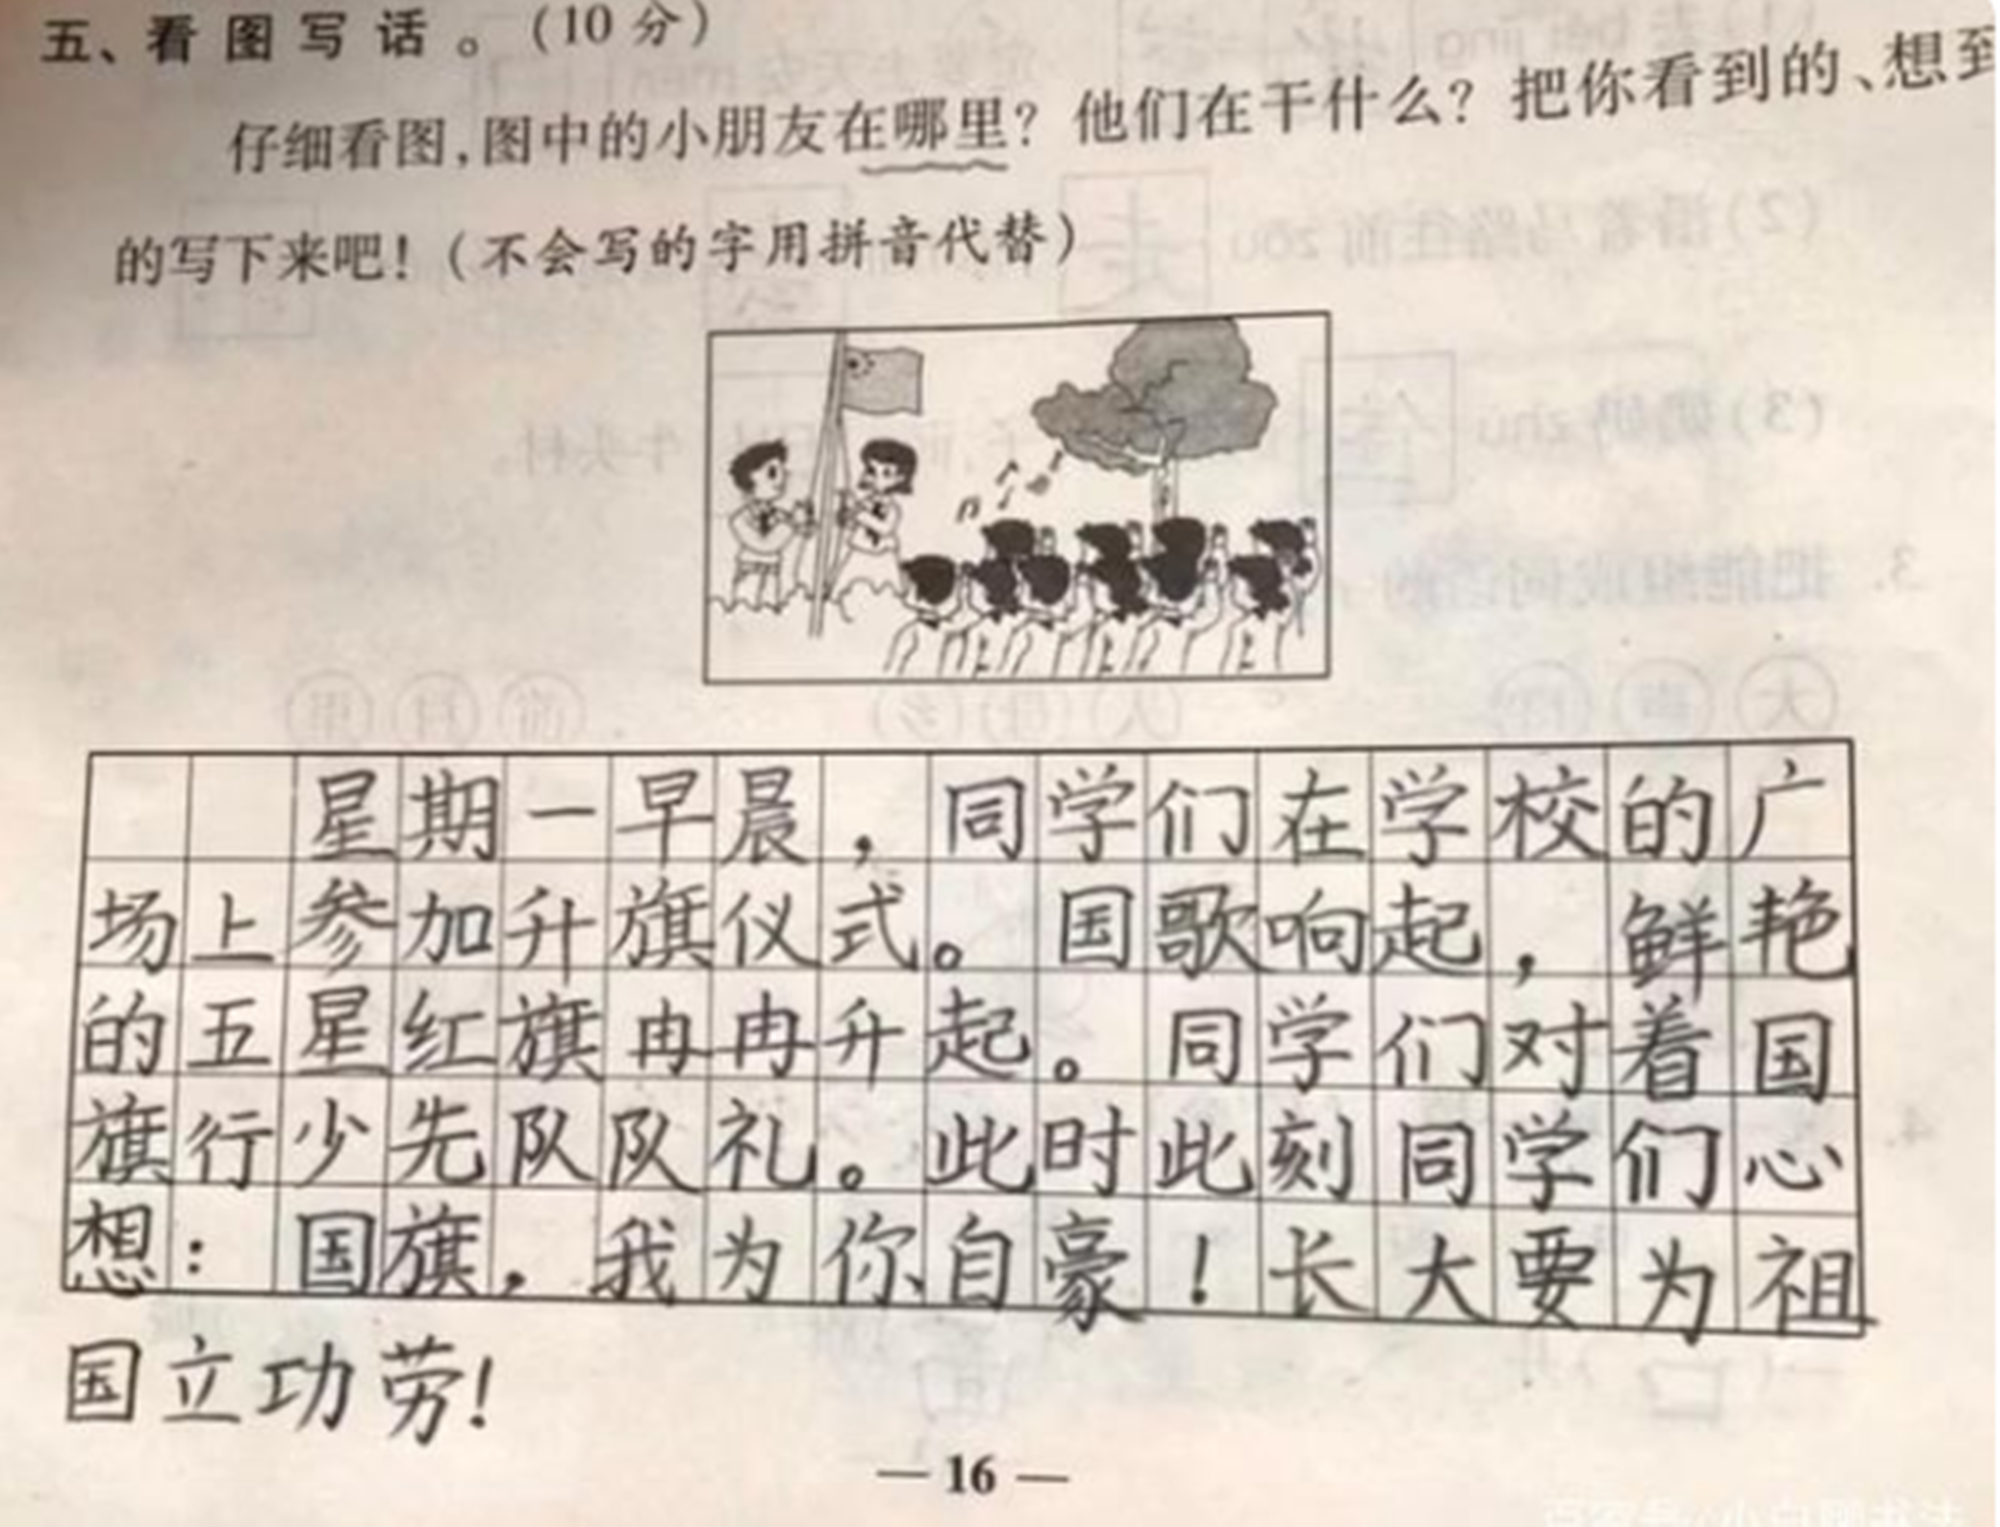 五、看图写话。(10分)
仔细看图,图中的小朋友在哪里?他们在干什么?把你看到的、想到
的写下来吧!(不会写的字用拼音代替)
星期一早晨,同学们在学校的广
场上参加升旗仪式。国歌响起,鲜艳
的五星红旗冉冉升起。同学们对着国
旗行少先队队礼。此时此刻同学们心
想:国旗,我为你自豪!长大要为祖
国立功劳!
— 16 —